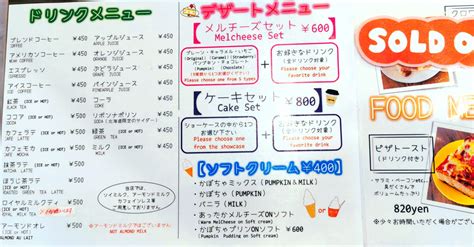 ドリンクメニュー
ブレンドコーヒー ¥450
アメリカンコーヒー ¥450
エスプレッソ ¥450
アイスコーヒー ¥450
紅茶 (ICE or HOT) ¥450
ココア (ICE or HOT)
カフェラテ (ICE or HOT)
カフェモカ (ICE or HOT)
抹茶ラテ (ICE or HOT)
MATCHA LATTE
ほうじ茶ラテ
ROASTED GREEN TEA LATTE
ロイヤルミルクティ
ROYAL MILK TEA (ICE or HOT)
アーモンドオレ (ICE or HOT)
ALMOND AU LAIT
アップルジュース ¥450
オレンジジュース ¥450
パインジュース ¥450
コーラ
緑茶
GREEN TEA
リボンナポリン
当店では
ソイミルク、アーモンドミルク
カフェインレス
も用意しております。
※アーモンドミルクではございません
NOT ALMOND MILK
デザートメニュー
メルチーズセット ¥600
Melcheese Set
プレーン・キャラメル・いちご
(Original) (Caramel) (Strawberry)
パンプキン・チョコレート
(Pumpkin) (Chocolate)
※5種類からお選びください
Please choose one from 5 types
+
お好きなドリンク
(全ドリンク対象)
Please choose your
favorite drink
ケーキセット ¥800
Cake Set
ショーケースの中から1つ
お選び下さい
Please choose one
from the showcase
+
お好きなドリンク
(全ドリンク対象)
Please choose your
favorite drink
【ソフトクリーム¥400】
・かぼちゃミックス (PUMPKIN&MILK)
・かぼちゃ (PUMPKIN)
・バニラ (MILK)
・あったかメルチーズONソフト
(Warm MelCheese on Soft cream)
・かぼちゃプリンONソフト
(Pumpkin Pudding on Soft cream)
SOLD O
FOOD ME
ピザトースト
(ドリンク付き)
820yen